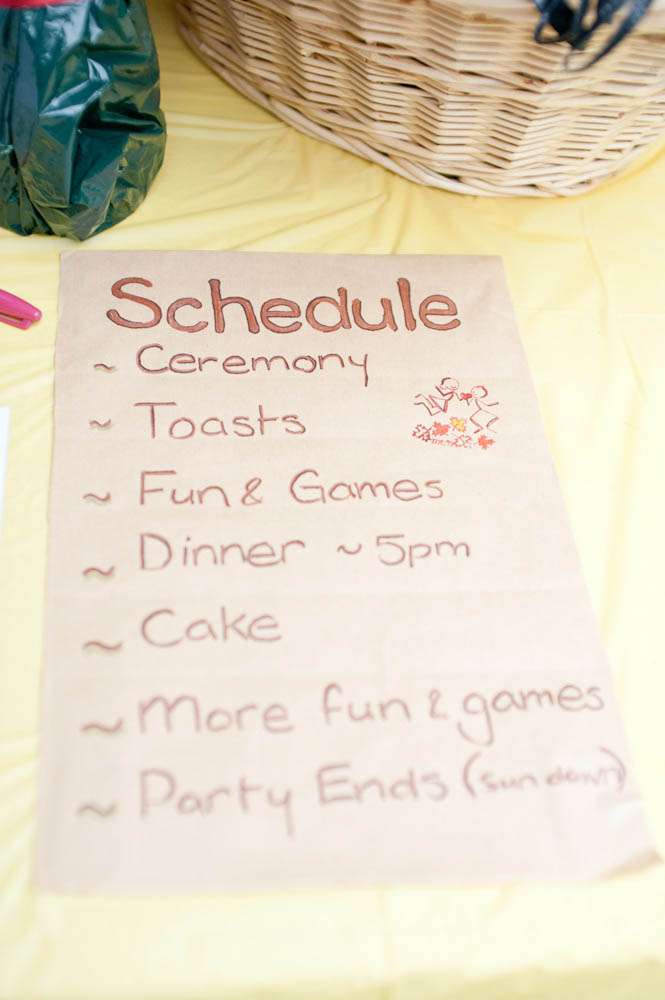 Schedule
~ Ceremony
~ Toasts
~ Fun & Games
~ Dinner ~ 5pm
~ Cake
~ More fun & games
~ Party Ends (sun down)